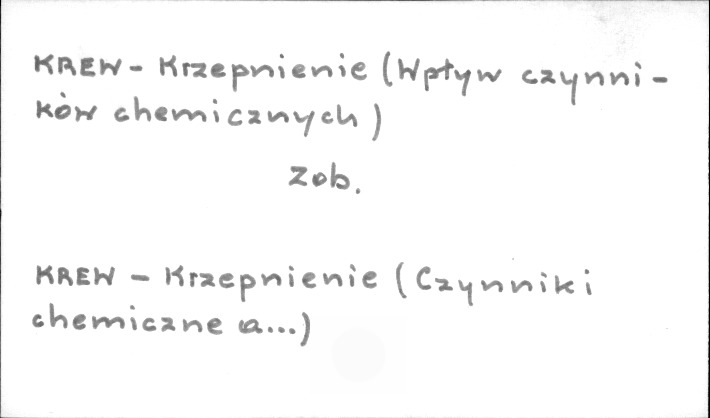 KREW - Krzepnienie (Wpływ czynni-
ków chemicznych)
zob.
KREW - Krzepnienie (Czynniki
chemiczne a...)